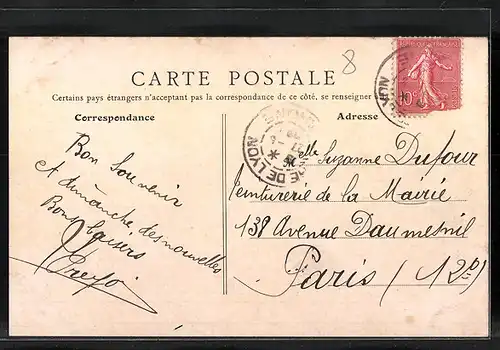 8
REPUBLIQUE FRANÇAISE
10c
CARTE POSTALE
Certains pays étrangers n'acceptent pas la correspondance de ce côté, se renseigner
Correspondance
Adresse
GARE DE LYON
Bon Souvenir
A dimanche, des nouvelles
Bons baisers
Melle Suzanne Dufour
Teinturerie de la Mairie
138 Avenue Daumesnil
Paris (12e)